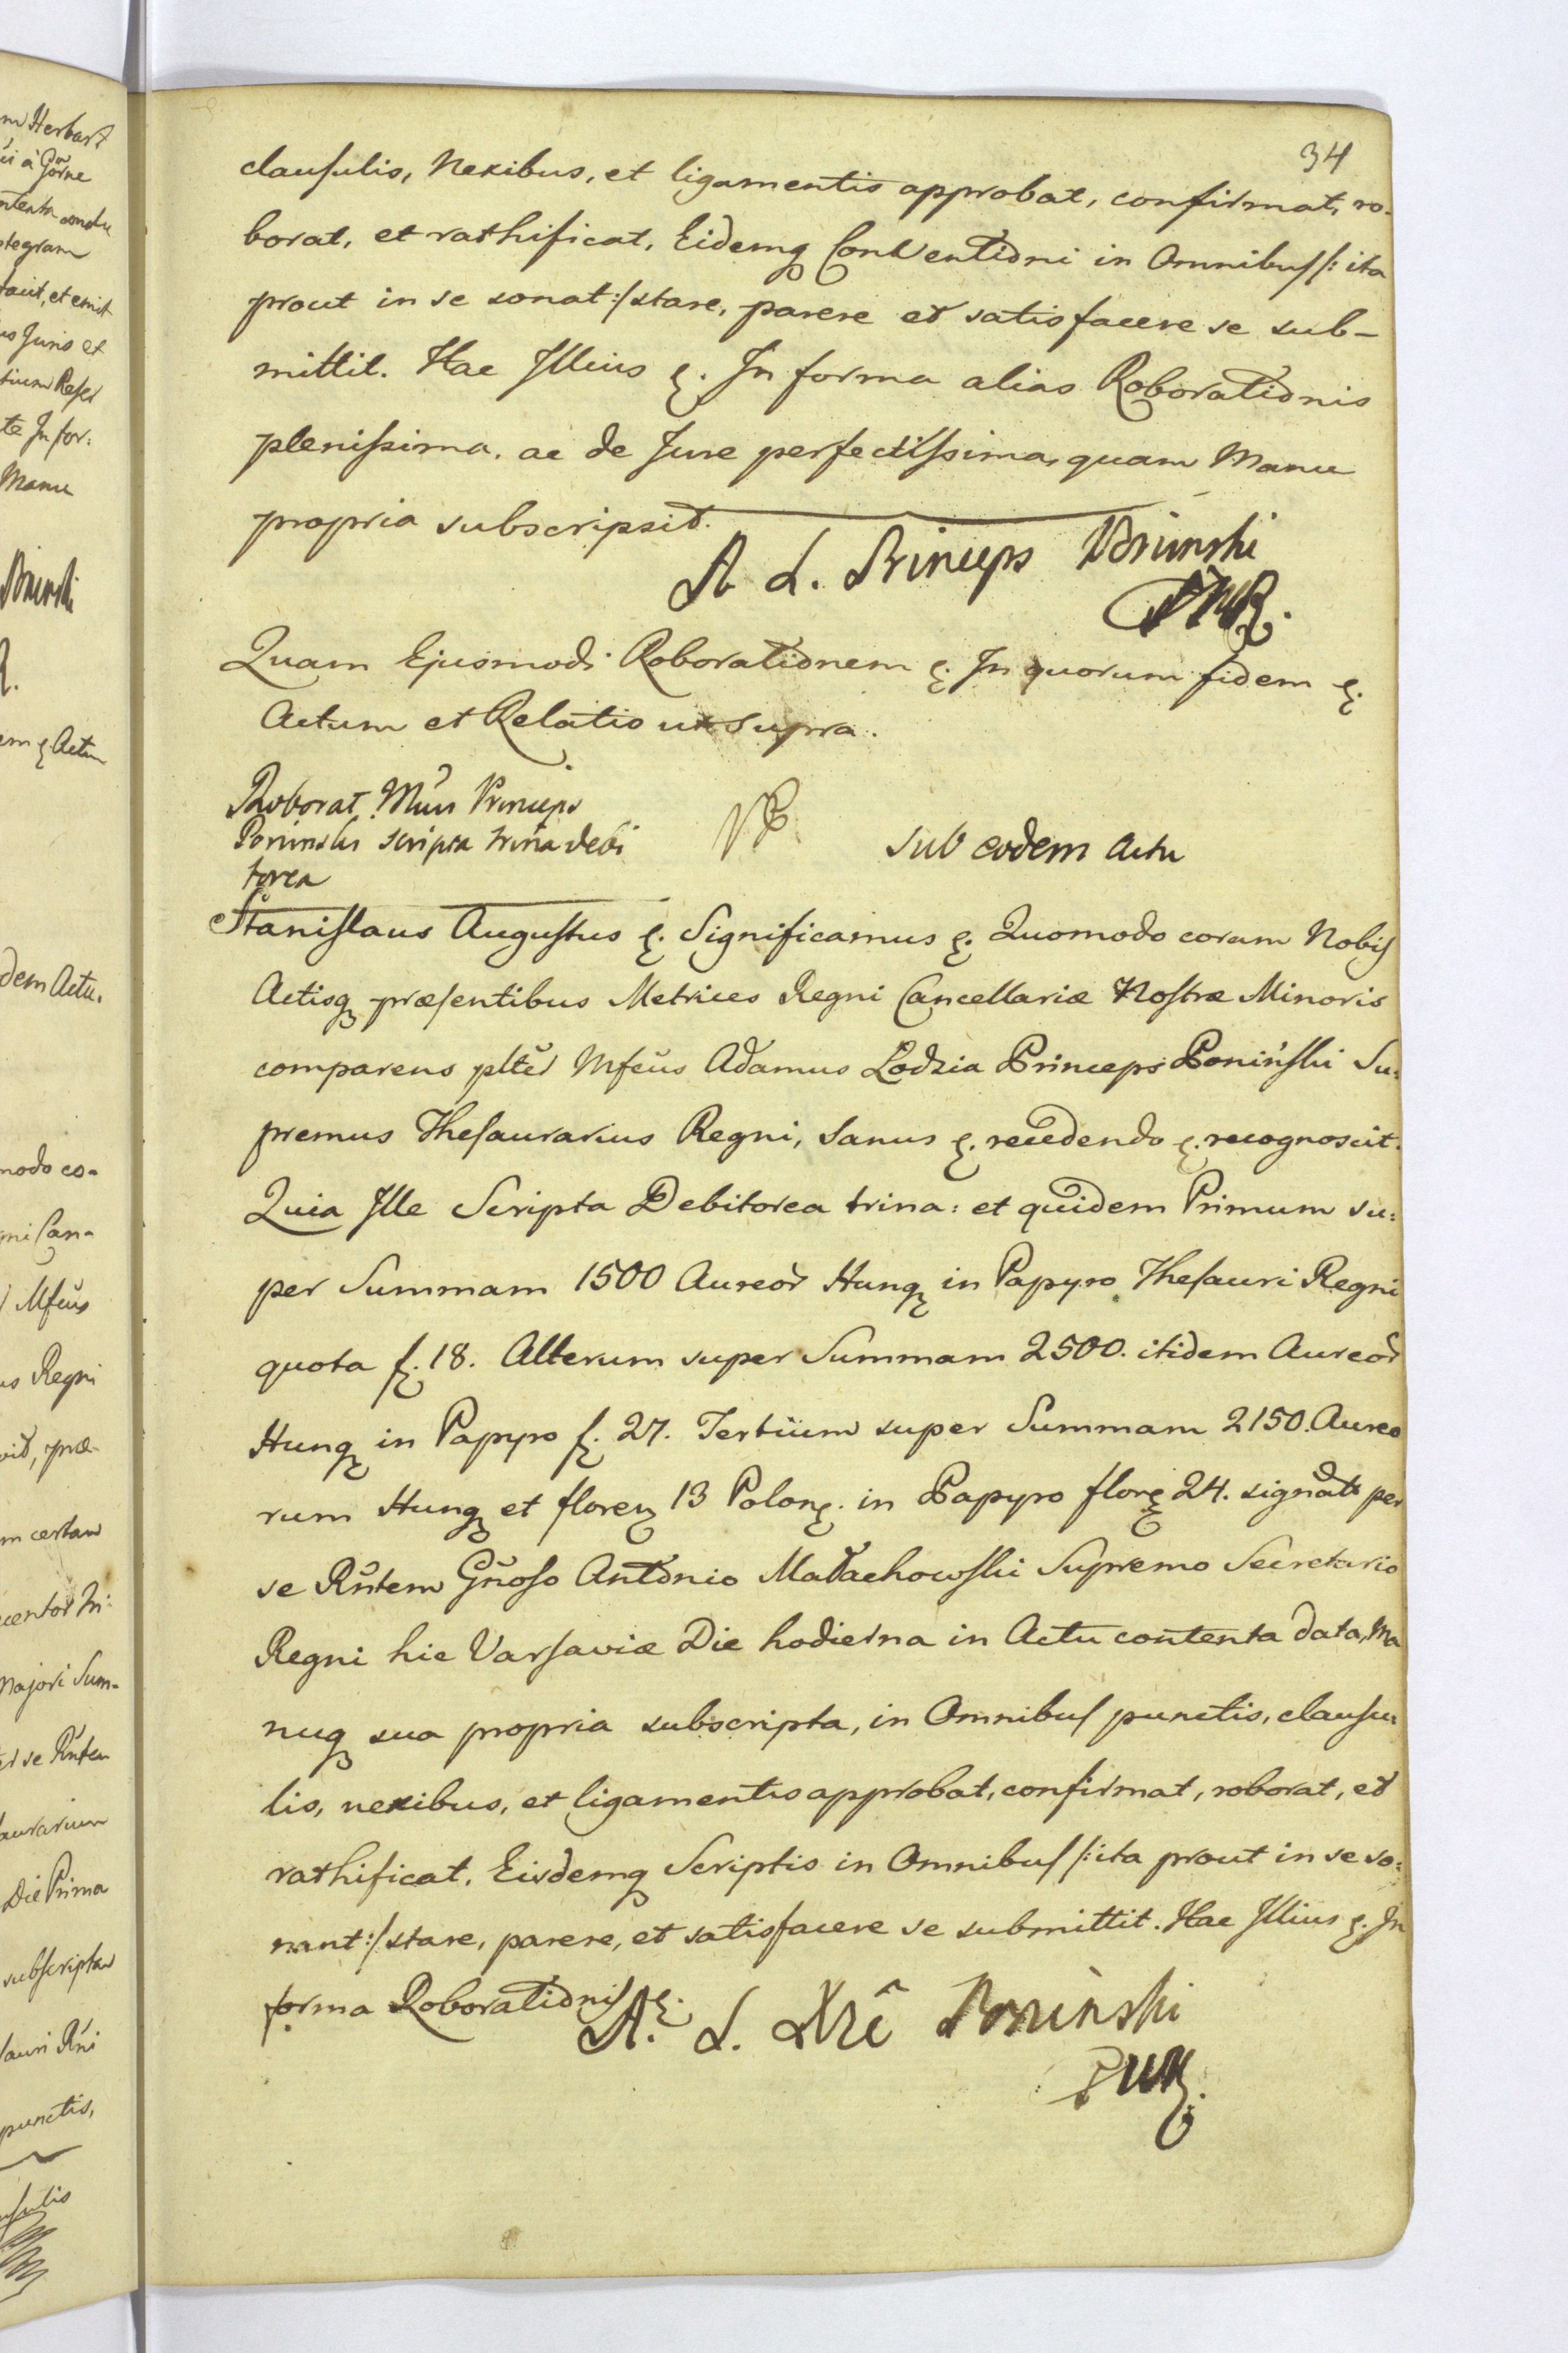 34
clausulis, Nexibus, et ligamentis approbat, confirmat, ro-
borat, et rathificat, Eidemq Conventioni in Omnibus /: ita
prout in se sonat :/ stare, parere et satisfacere se sub-
mittit. Hac Illius &. In forma alias Roborationis
plenissima, ac de Jure perfectissima, quam Manu
propria subscripsit.
A L. Princeps Poninski
Quam Ejusmodi Roborationem &. In quorum fidem &.
Actum et Relatio ut supra.
Roborat Mcus Princeps
Poninski scripta trina debi
torea
sub eodem Actu
Stanislaus Augustus &. Significamus &. Quomodo coram Nobis
Actisq præsentibus Metrices Regni Cancellariæ Nostræ Minoris
comparens plter Mfcus Adamus Lodzia Princeps Poniński Su:
premus Thesaurarius Regni, Sanus &. recedendo &. recognoscit.
Quia Ille Scripta Debitorea trina: et quidem Primum su:
per Summam 1500 Aureor Hung in Papyro Thesauri Regni
quota f. 18. Alterum super Summam 2500. itidem Aureor
Hung in Papyro f. 27. Tertium super Summam 2150. Aureo
rum Hung et floren 13 Polon. in Papyro flor 24. signat per
se Rntem Gnoso Antonio Małachowski Supremo Secretario
Regni hic Varsaviæ Die hodierna in Actu contenta data, Ma
nuq sua propria subscripta, in Omnibus punctis, clausu
lis, nexibus, et ligamentis approbat, confirmat, roborat, et
rathificat, Eisdemq Scriptis in Omnibus /: ita prout in se so:
nant :/ stare, parere, et satisfacere se submittit. Hac Illius &. In
forma Roborationis &.
A. L. Poninski